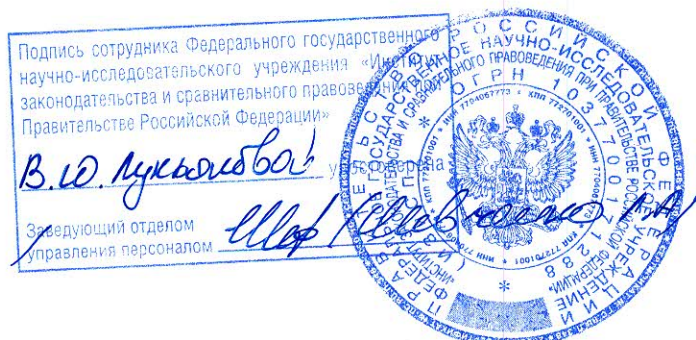 Подпись сотрудника Федерального государственного
научно-исследовательского учреждения «Институт
законодательства и сравнительного правоведения при
Правительстве Российской Федерации»
В.Ю. Лукьяновой удостоверена
Заведующий отделом
управления персоналом
ПРАВИТЕЛЬСТВО РОССИЙСКОЙ ФЕДЕРАЦИИ
ФЕДЕРАЛЬНОЕ ГОСУДАРСТВЕННОЕ НАУЧНО-ИССЛЕДОВАТЕЛЬСКОЕ УЧРЕЖДЕНИЕ
«ИНСТИТУТ ЗАКОНОДАТЕЛЬСТВА И СРАВНИТЕЛЬНОГО ПРАВОВЕДЕНИЯ ПРИ ПРАВИТЕЛЬСТВЕ РОССИЙСКОЙ ФЕДЕРАЦИИ»
ОГРН 1037700171288
ИНН 7704067773 * КПП 772701001